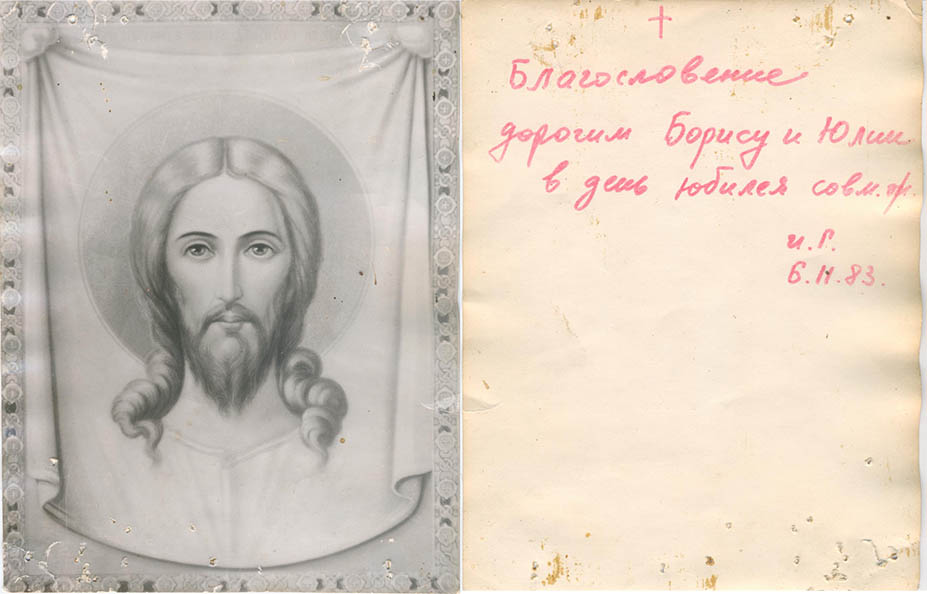 Благословение
дорогим Борису и Юлии
в день юбилея совм. ж.
и. Г.
6.11.83.